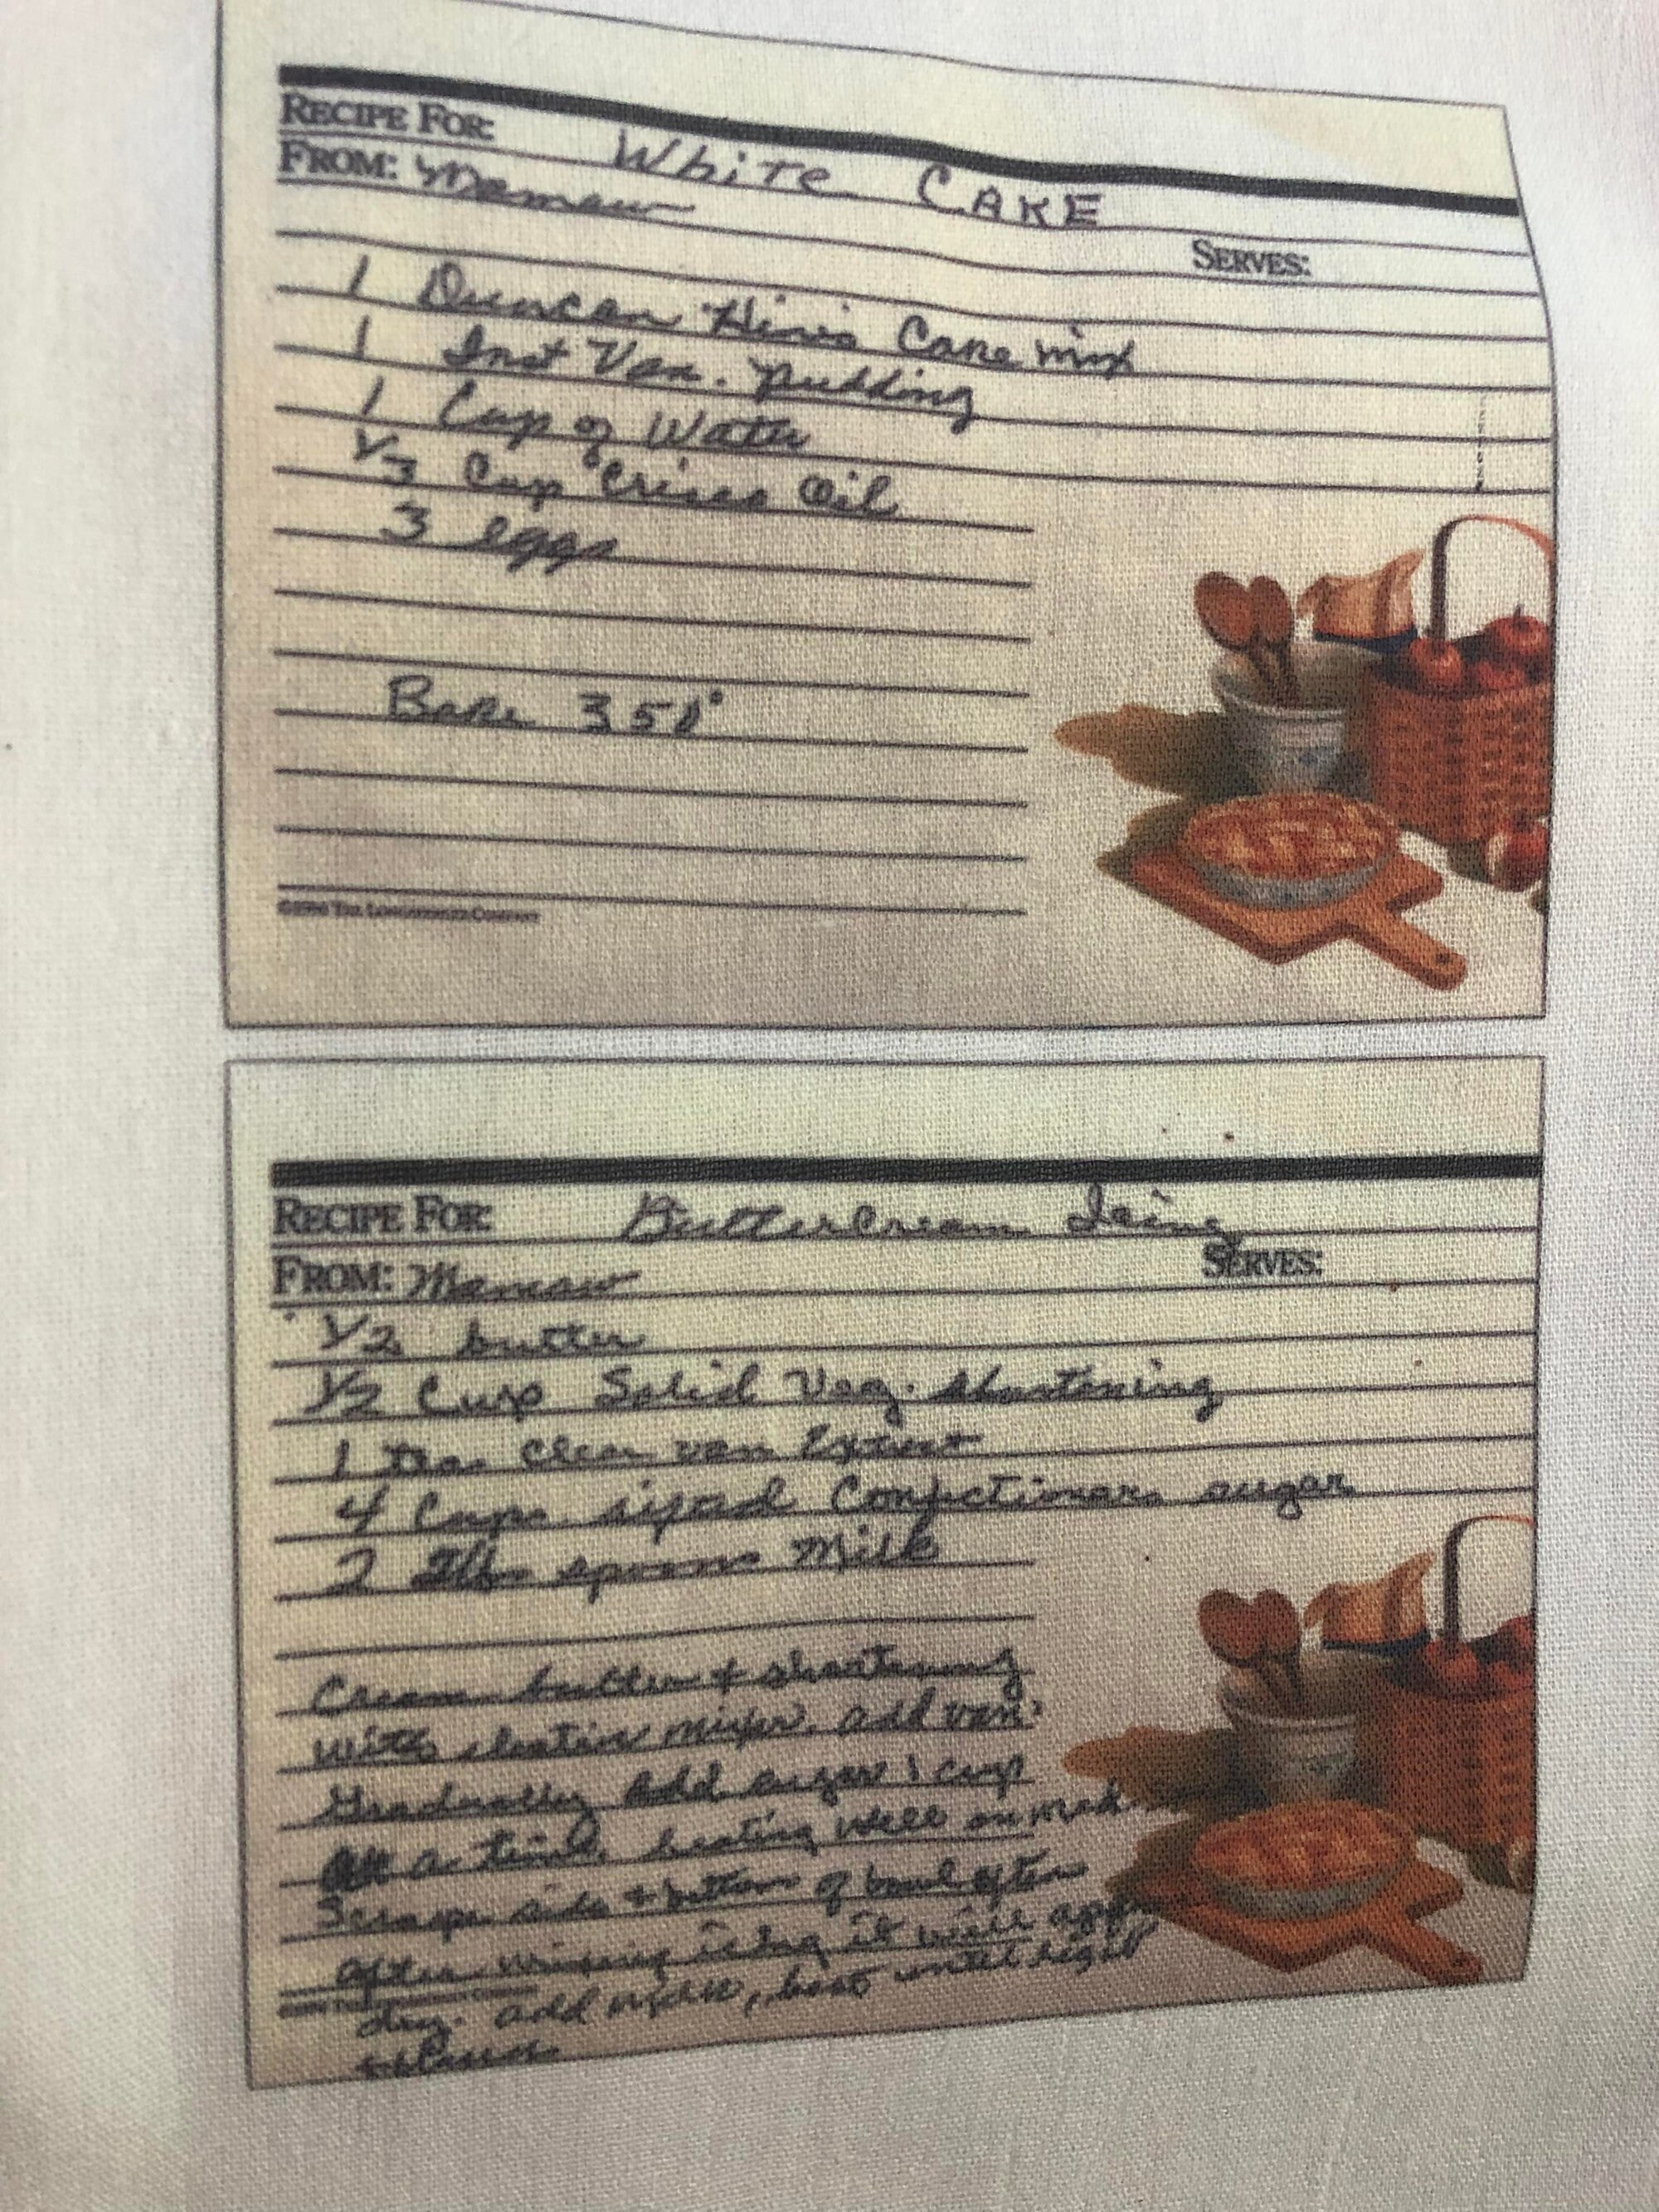 RECIPE FOR: White CAKE
FROM: Mamaw
SERVES:
1 Duncan Hines Cake mix
1 Inst Van. Pudding
1 Cup of Water
1/3 Cup Crisco Oil
3 eggs
Bake 350°
©1990 THE LONGABERGER COMPANY
RECIPE FOR: ButterCream Icing
FROM: Mamaw
SERVES:
1/2 butter
1/2 Cup Solid Veg. shortening
1 tea. Clear van Extract
4 Cups sifted Confectioners sugar
2 spoons Milk
Cream butter & shortening
with mixer. add van.
Gradually Add sugar 1 cup
At a time. beating well on
Scrape side & bottom of bowl often
After mixing icing it will
dry. add milk, beat until light